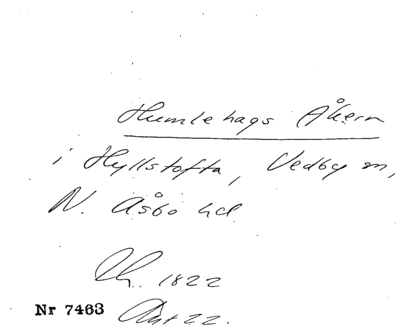 Humlehags Åkern
i Hyllstofta, Vedby sn,
N. Åsbo hd.
Ch. 1822
Nr 7463
Akt 22.